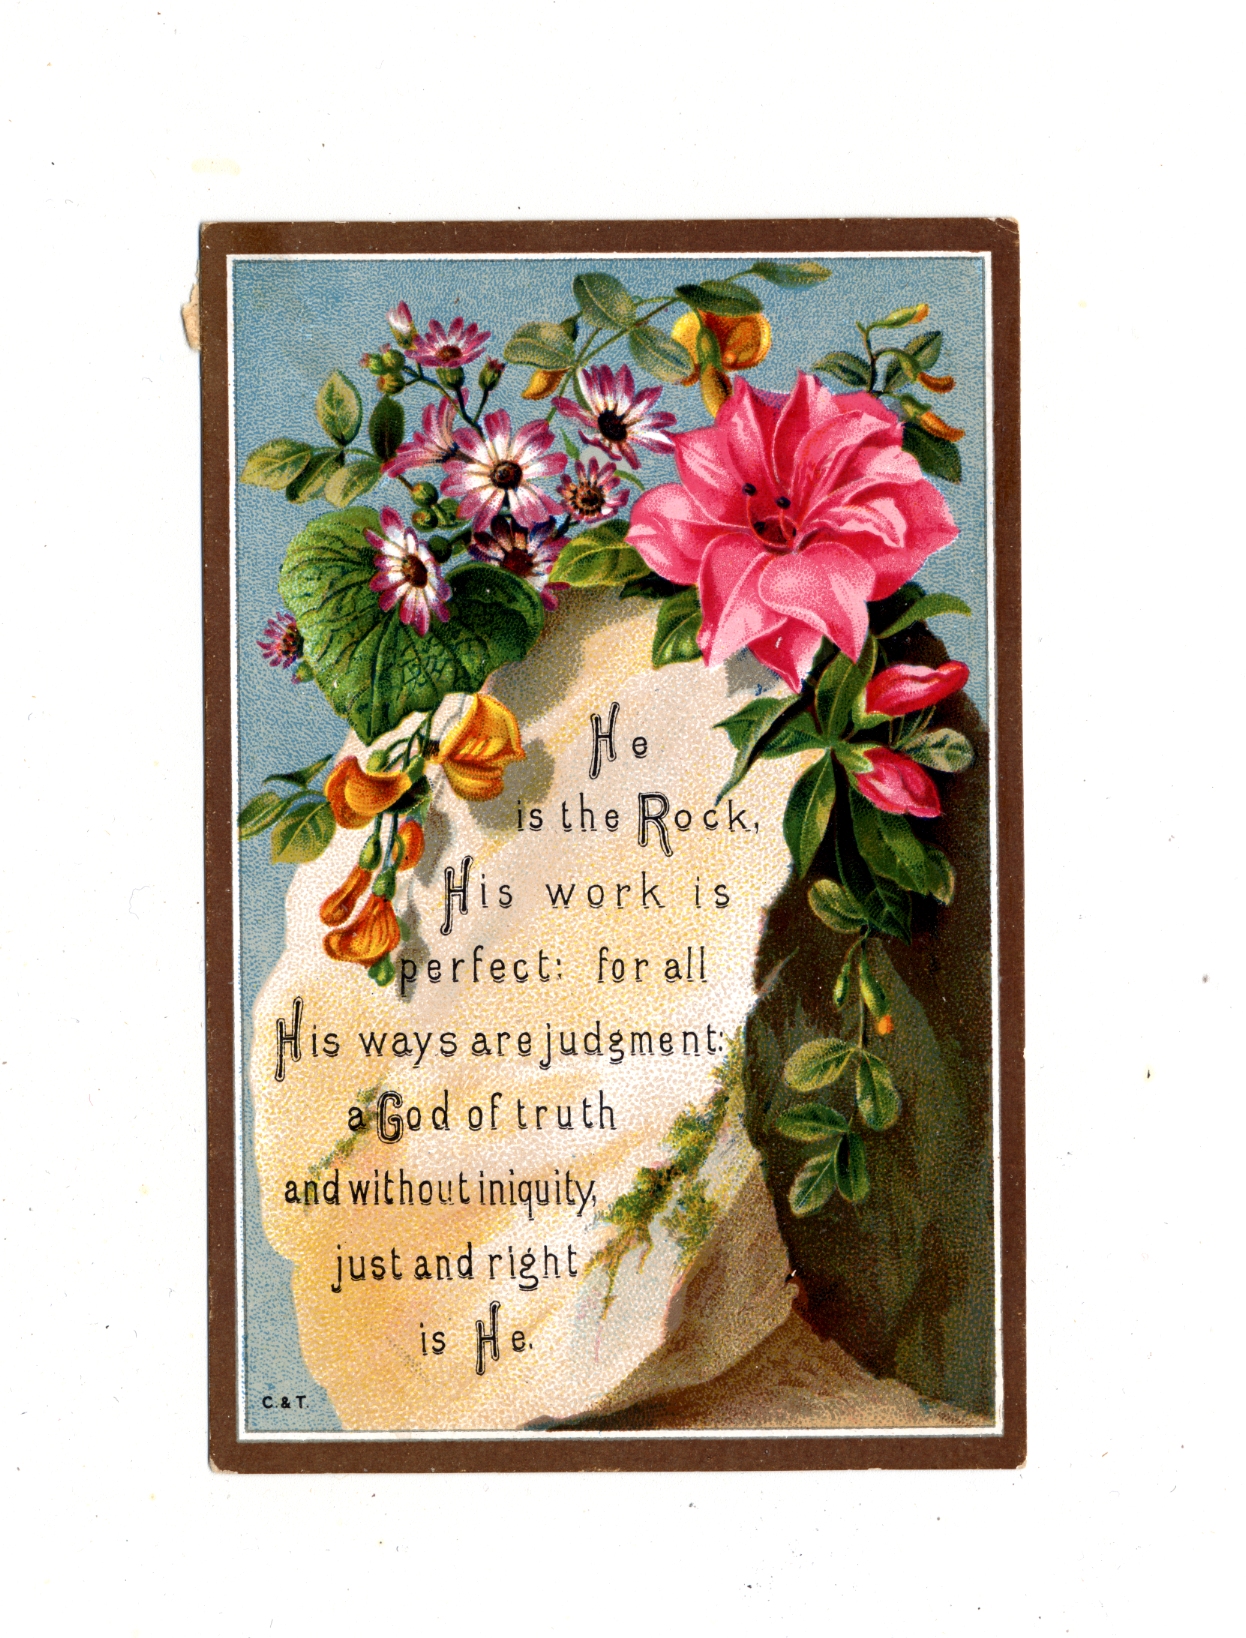 He
is the Rock,
His work is
perfect: for all
His ways are judgment:
a God of truth
and without iniquity,
just and right
is He.
C. & T.